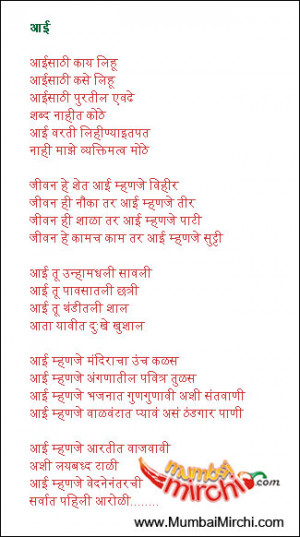 आई
आईसाठी काय लिहू
आईसाठी कसे लिहू
आईसाठी पुरतील एवढे
शब्द नाहीत कोठे
आई वरती लिहीण्याइतपत
नाही माझे व्यक्तिमत्व मोठे
जीवन हे शेत आई म्हणजे विहीर
जीवन ही नौका तर आई म्हणजे तीर
जीवन ही शाळा तर आई म्हणजे पाटी
जीवन हे कामच काम तर आई म्हणजे सुट्टी
आई तू उन्हामधली सावली
आई तू पावसातली छत्री
आई तू थंडीतली शाल
आता यावीत दु:खे खुशाल
आई म्हणजे मंदिराचा उंच कळस
आई म्हणजे अंगणातील पवित्र तुळस
आई म्हणजे भजनात गुणगुणावी अशी संतवाणी
आई म्हणजे वाळवंटात प्यावं असं थंडगार पाणी
आई म्हणजे आरतीत वाजवावी
अशी लयबध्द टाळी
आई म्हणजे वेदनेनंतरची
सर्वात पहिली आरोळी........
mumbai
mirchi.com
www.MumbaiMirchi.com